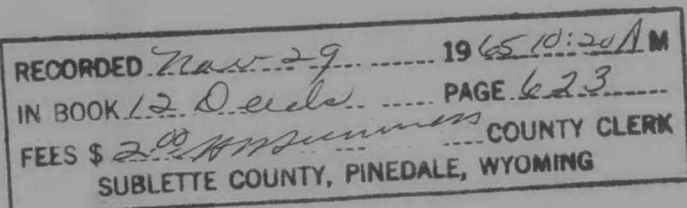 RECORDED Nov 29 1965 10:20 A M
IN BOOK 12 Deeds PAGE 623
FEES $ 2.00 COUNTY CLERK
SUBLETTE COUNTY, PINEDALE, WYOMING